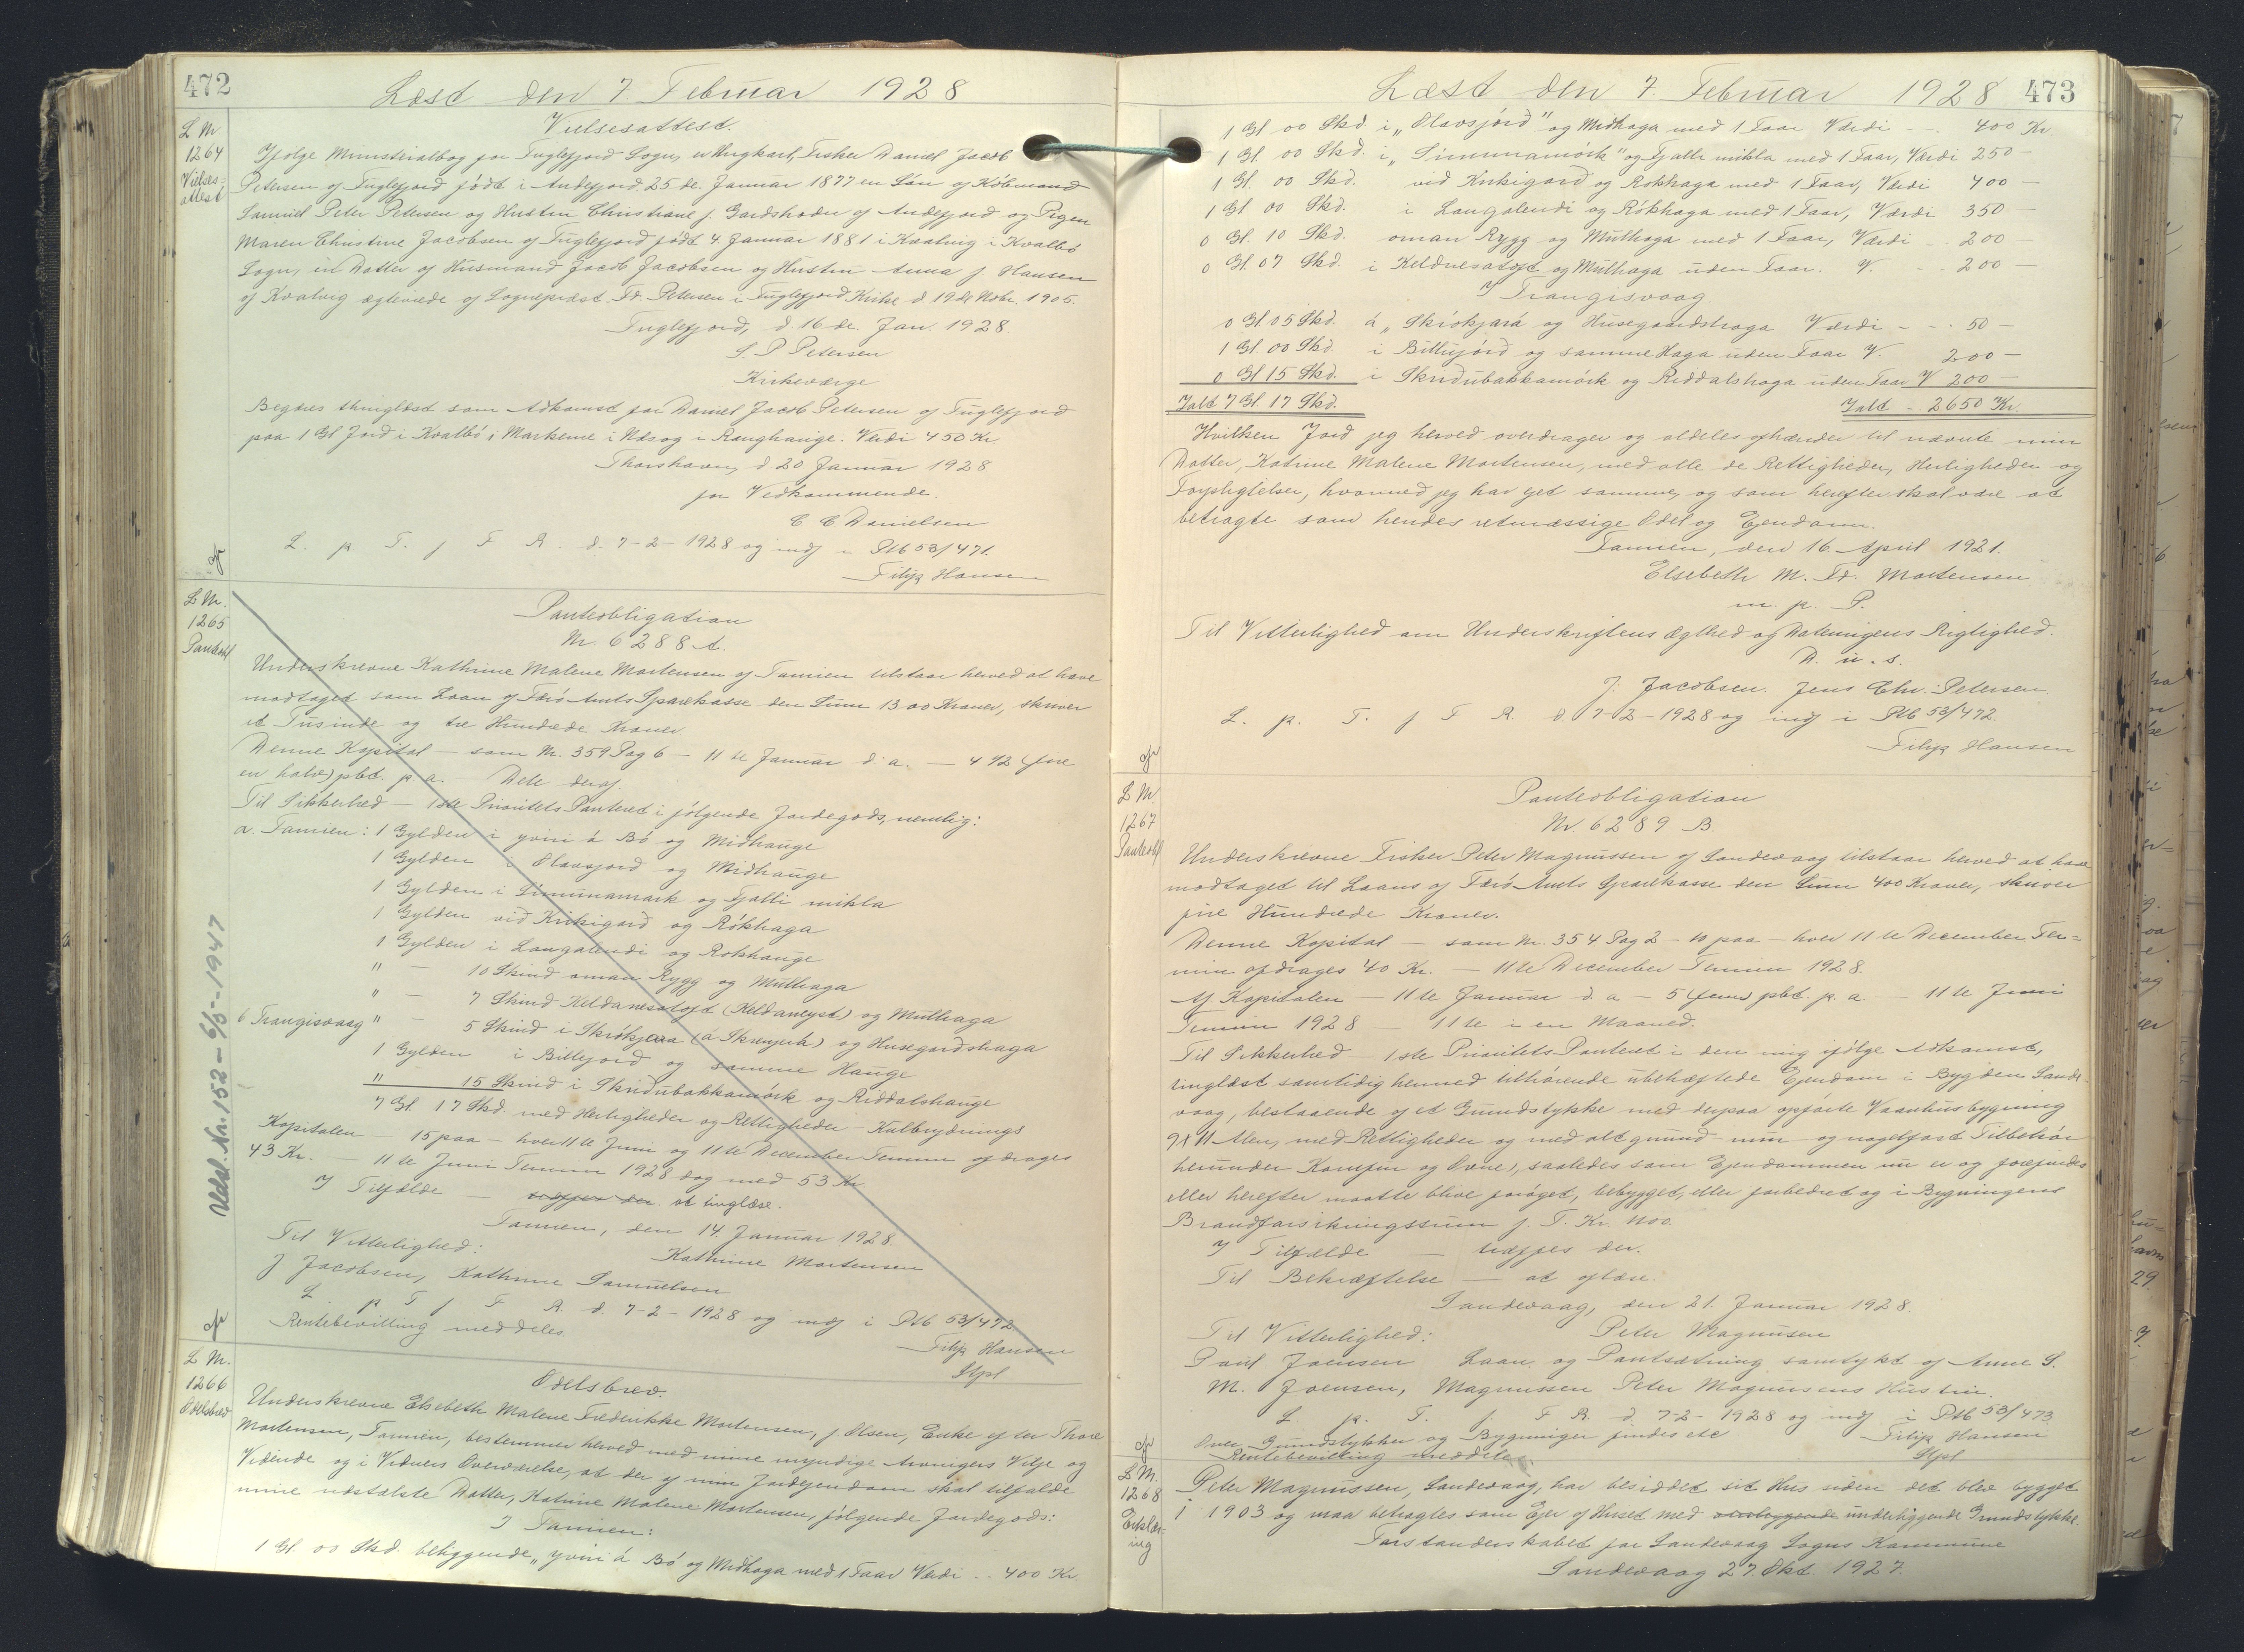 472
Læst den 7 Februar 1928
L Nr
1264
Vielses=
attest
Vielsesattest.
Ifølge Ministerialbog for Fuglefjord Sogn, er Ungkarl, Fisker Daniel Jacob
Petersen af Fuglefjord født i Andefjord 25 de. Januar 1877 en Søn af Købmand
Samuel Peter Petersen og Hustru Christiane f. Gardshodn af Andefjord og Pigen
Maren Christine Jacobsen af Fuglefjord født 4. Januar 1881 i Kvalvig i Kvalbø
Sogn, en Datter af Husmand Jacob Jacobsen og Hustru Anna f. Hansen
af Kvalvig ægteviede af Sognepræst Fr. Petersen i Fuglefjord Kirke d 19 de Nobr. 1905.
Fuglefjord, d. 16 de. Jan. 1928.
S. P Petersen
Kirkeværge
Begæres thinglæst som Adkomst for Daniel Jacob Petersen af Fuglefjord
paa 1 Gl Jord i Kvalbø i Markerne i Næs og i Ranghauge. Værdi 450 Kr
Thorshavn, d 20 Januar 1928
for Vedkommende.
C C Danielsen
L. p T. f F R. d. 7-2-1928 og indf i Ptb 53/471.
Filip Hansen
L Nr.
1265
Panteobl
Panteobligation
Nr. 6288 A.
Underskrevne Kathrine Malene Mortensen af Famien tilstaar herved at have
modtaget som Laan af Færø Amts Sparekasse den Sum 1300 Kroner, skriver
et Tusinde og tre Hundrede Kroner
Denne Kapital — som Nr. 359 Pag 6 — 11 te Januar d. a. — 4 1/2 (fire
en halv) pbt. p a. — Dele deraf
Til Sikkerhed — 1ste Prioritets Panteret i følgende Jordegods, nemlig:
a. Famien: 1 Gylden i yviri á Bø og Midhauge
1 Gylden i Olavsjord og Midhauge
1 Gylden i Simunamørk og Fjalli mikla
1 Gylden við Kirkigard og Rókhaga
1 Gylden i Langalendi og Rokhauge
" — 10 Skind oman Rygg og Mulhaga
" — 7 Skind Keldanesatoft (Keldaneyst) og Mulhaga
b Trangisvaag " — 5 Skind i Skrókjara (á Skrenjerk) og Husegardshaga
1 Gylden i Billejord og samme Hauge
" 15 Skind i Skriðubakkamørk og Riddalshauge
7 Gl. 17 Skd. med Herligheder og Rettigheder — Kulbrydnings
Kapitalen — 15 paa — hver 11 te Juni og 11 te December Termin afdrages
43 Kr. — 11 te Juni Termin 1928 dog med 53 Kr.
I Tilfælde — træffes der. at tinglæse.
Famien, den 14. Januar 1928.
Til Vitterlighed: Kathrine Mortensen
J Jacobsen, Kathrine Samuelsen
L p T f F R. d. 7-2-1928 og indf i Ptb 53/472
Rentebevilling meddeles
Filip Hansen
Stpl
Udsl Nr. 152 - 6/5-1947
L Nr.
1266
Odelsbrev
Odelsbrev.
Underskrevne Elsebeth Malene Frederikke Mortensen, f Olsen, Enke efter Thore
Mortensen, Famien, bestemmer herved med mine myndige Arvingers Vilje og
Vidende og i Vidners Overværelse, at der af min Jordejendom skal tilfalde
mine næstælste Datter, Katrine Malene Mortensen, følgende Jordegods:
I Famien:
1 Gl. 00 Skd. beliggende „yviri á Bø og Midhaga med 1 Faar Værdi .. 400 Kr.
Læst den 7. Februar 1928
473
1 Gl 00 Skd i „Olavsjørð" og Midhaga med 1 Faar Værdi - .. 400 Kr.
1 Gl. 00 Skd. i „Simunamørk" og Fjalli mikla med 1 Faar, Værdi 250 -
1 Gl. 00 Skd. við Kirkigard og Rokhaga med 1 Faar, Værdi 400 -
1 Gl 00 Skd. i Langalendi og Rókhaga med 1 Faar, Værdi 350 -
0 Gl. 10 Skd. oman Rygg og Mulhaga med 1 Faar, Værdi .. 200 -
0 Gl. 07 Skd. i Keldnesatoft og Mulhaga uden Faar. V. - .. 200
I Trangisvaag.
0 Gl. 05 Skd. á „Skrókjará og Husegaardshaga Værdi - - . 50 -
1 Gl. 00 Skd. i Billisjørð og samme Haga uden Faar V. 200 -
0 Gl 15 Skd. i Skriðubakkamørk og Riddalshaga uden Faar V 200 -
Ialt 7 Gl. 17 Skd. Ialt - . 2650 Kr.
Hvilken Jord jeg herved overdrager og aldeles afhænder til nævnte min
Datter, Katrine Malene Mortensen, med alle de Rettigheder, Herligheder og
Forpligtelser, hvormed jeg har ejet samme, og som herefter skal være at
betragte som hendes retmæssige Odel og Ejendom.
Famien, den 16. April 1921.
Elsebeth M. Fr. Mortensen
m. p. P.
Til Vitterlighed om Underskriftens Ægthed og Dateringens Rigtighed.
D. u. s.
J. Jacobsen. Jens Chr. Petersen.
L. p. T. f F R. d. 7-2-1928 og indf i Ptb 53/472.
Filip Hansen
L Nr
1267
Panteobl
Panteobligation
Nr. 6289 B.
Underskrevne Fisker Peter Magnussen af Sandevaag tilstaar herved at have
modtaget til Laans af Færø Amts Sparekasse den Sum 400 Kroner, skriver
fire Hundrede Kroner.
Denne Kapital — som Nr. 354 Pag 2 — 10 paa — hver 11 te December Ter=
min afdrages 40 Kr. — 11 te December Termin 1928.
Af Kapitalen — 11 te Januar d. a — 5 (fem) pbt. p. a. — 11 te Juni
Termin 1928 — 11 te i en Maaned.
Til Sikkerhed — 1ste Prioritets Panteret i den mig ifølge Adkomst,
tinglæst samtidig hermed tilhørende ubehæftede Ejendom i Bygden Sande-
vaag, bestaaende af et Grundstykke med derpaa opførte Vaanhusbygning
9 x 11 Alen, med Rettigheder og med alt grund- mur- og nagelfast Tilbehør
herunder Komfur og Ovne), saaledes som Ejendommen nu er og forefindes
eller herefter maatte blive forøget, bebygget, eller forbedret og i Bygningens
Brandforsikringssum f. T. Kr. 1100.
I Tilfælde — træffes der.
Til Bekræftelse — at aflæse.
Sandevaag, den 21. Januar 1928.
Til Vitterlighed: Peter Magnusen
Poul Joensen Laan og Pantsætning samtykt af Anne S.
M. Joensen, Magnussen Peter Magnusens Hustru.
L p. T. f. F R. d 7-2-1928 og indf i Ptb 53/473.
Over Grundstykker og Bygninger findes etc Filip Hansen
Rentebevilling meddeles Stpl
L Nr.
1268
Erklær-
ing
Peter Magnussen, Sandevaag, har besiddet sit Hus siden det blev bygget
i 1903 og maa betragtes som Ejer af Huset med underliggende Grundstykke.
Forstanderskabet for Sandevaag Sogns Kommune
Sandevaag 27. Okt. 1927.